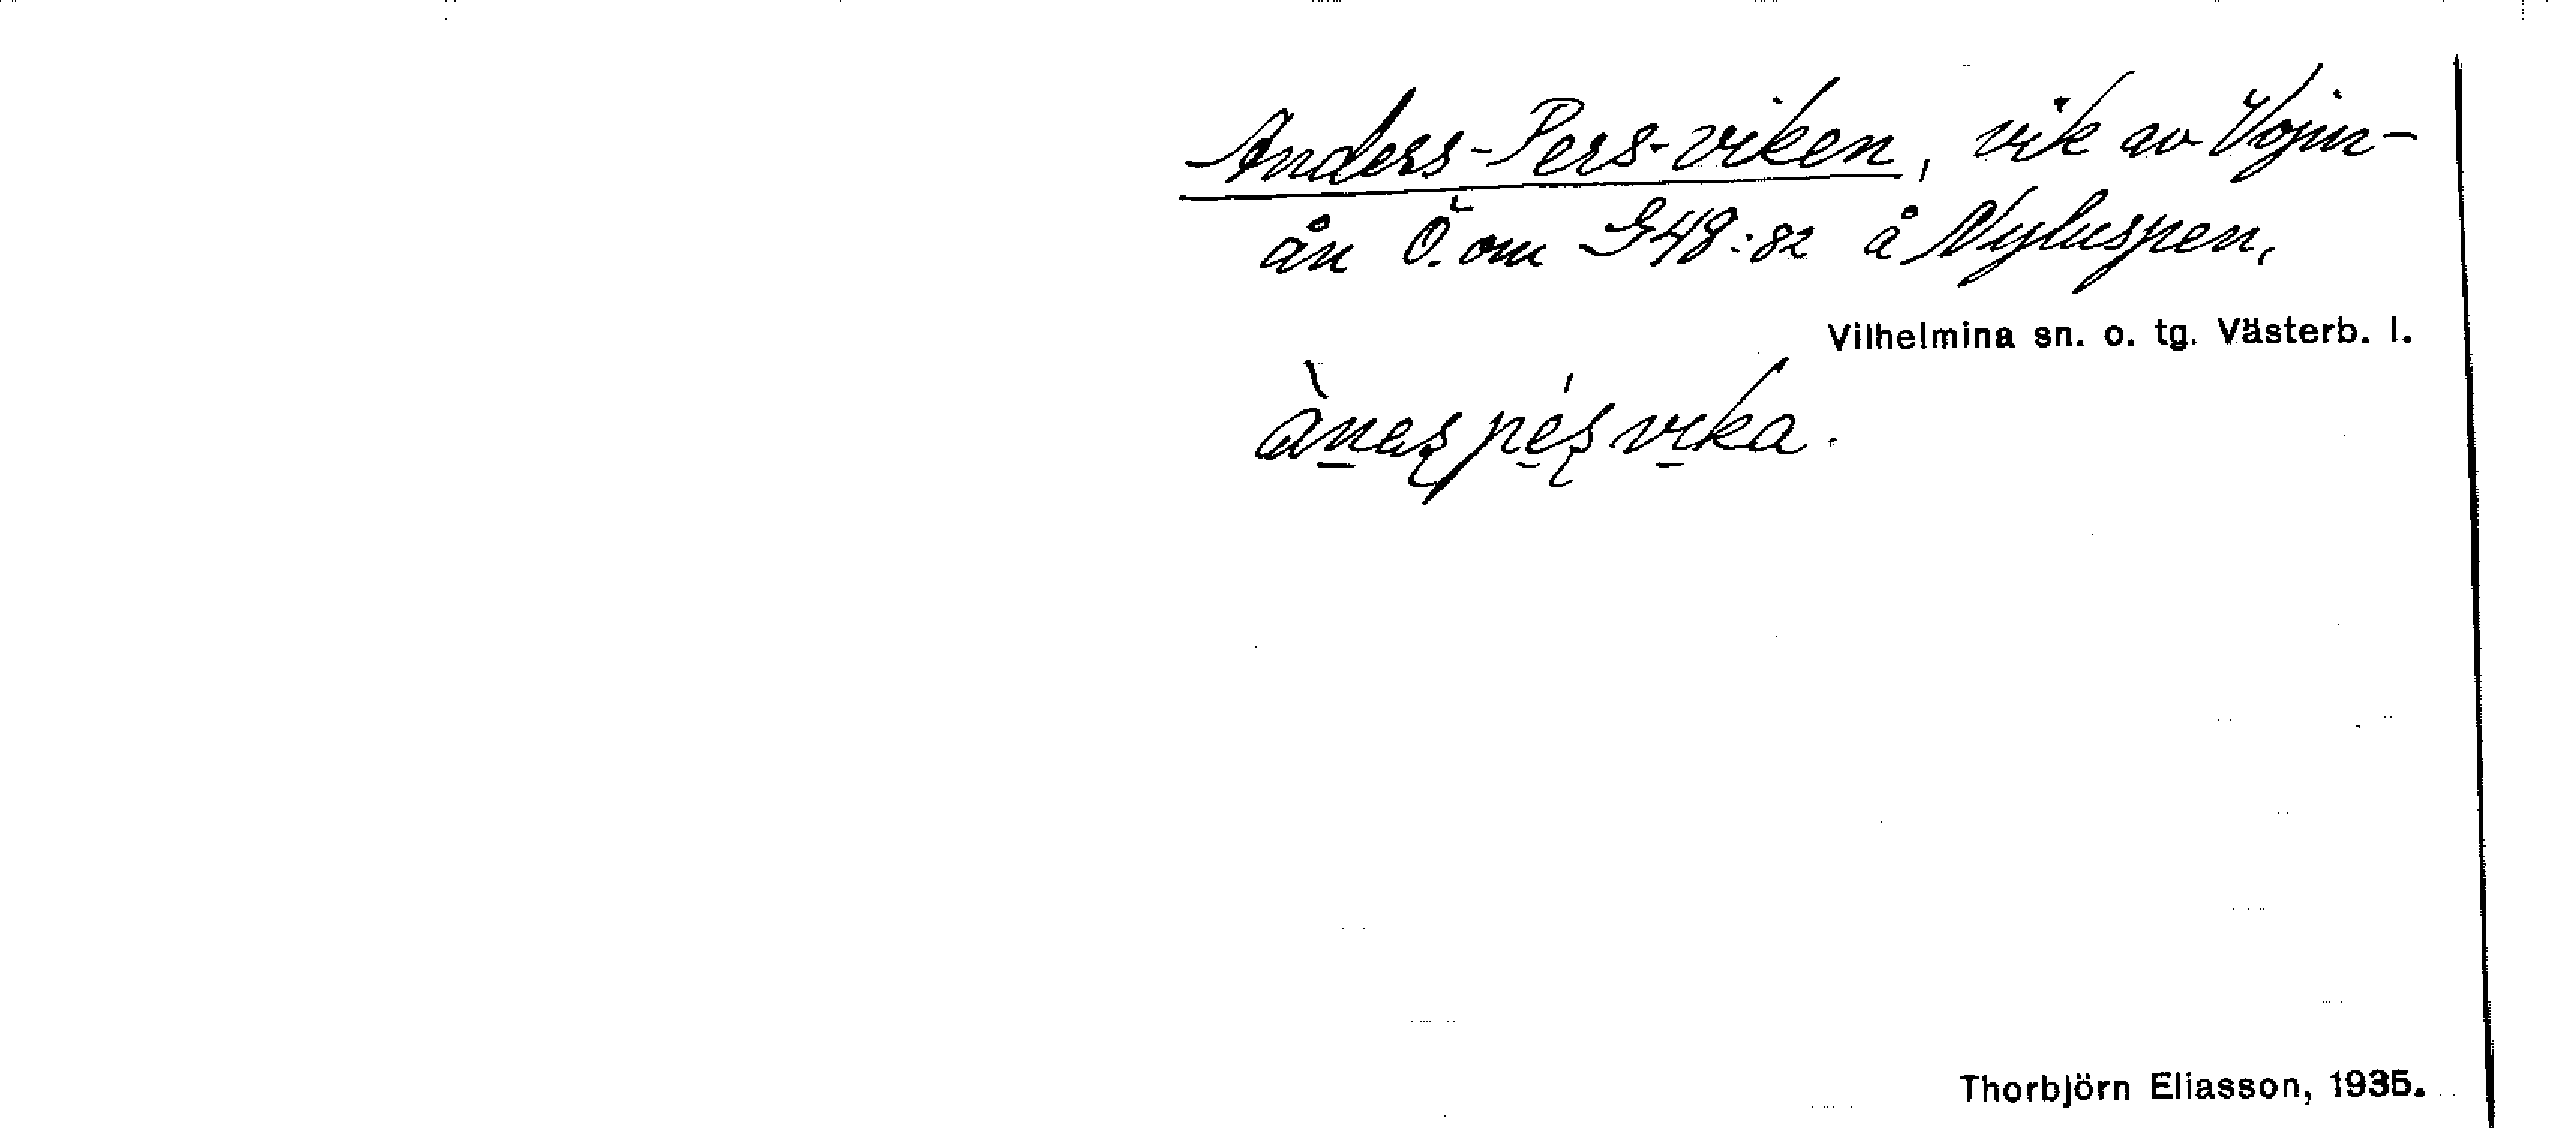 Anders-Pers-viken, vik av Vojm-
ån Ö. om G48:82 å Nyluspen.
Vilhelmina sn. o. tg. Västerb. l.
ànaʂpéʂvika.
Thorbjörn Eliasson, 1935.